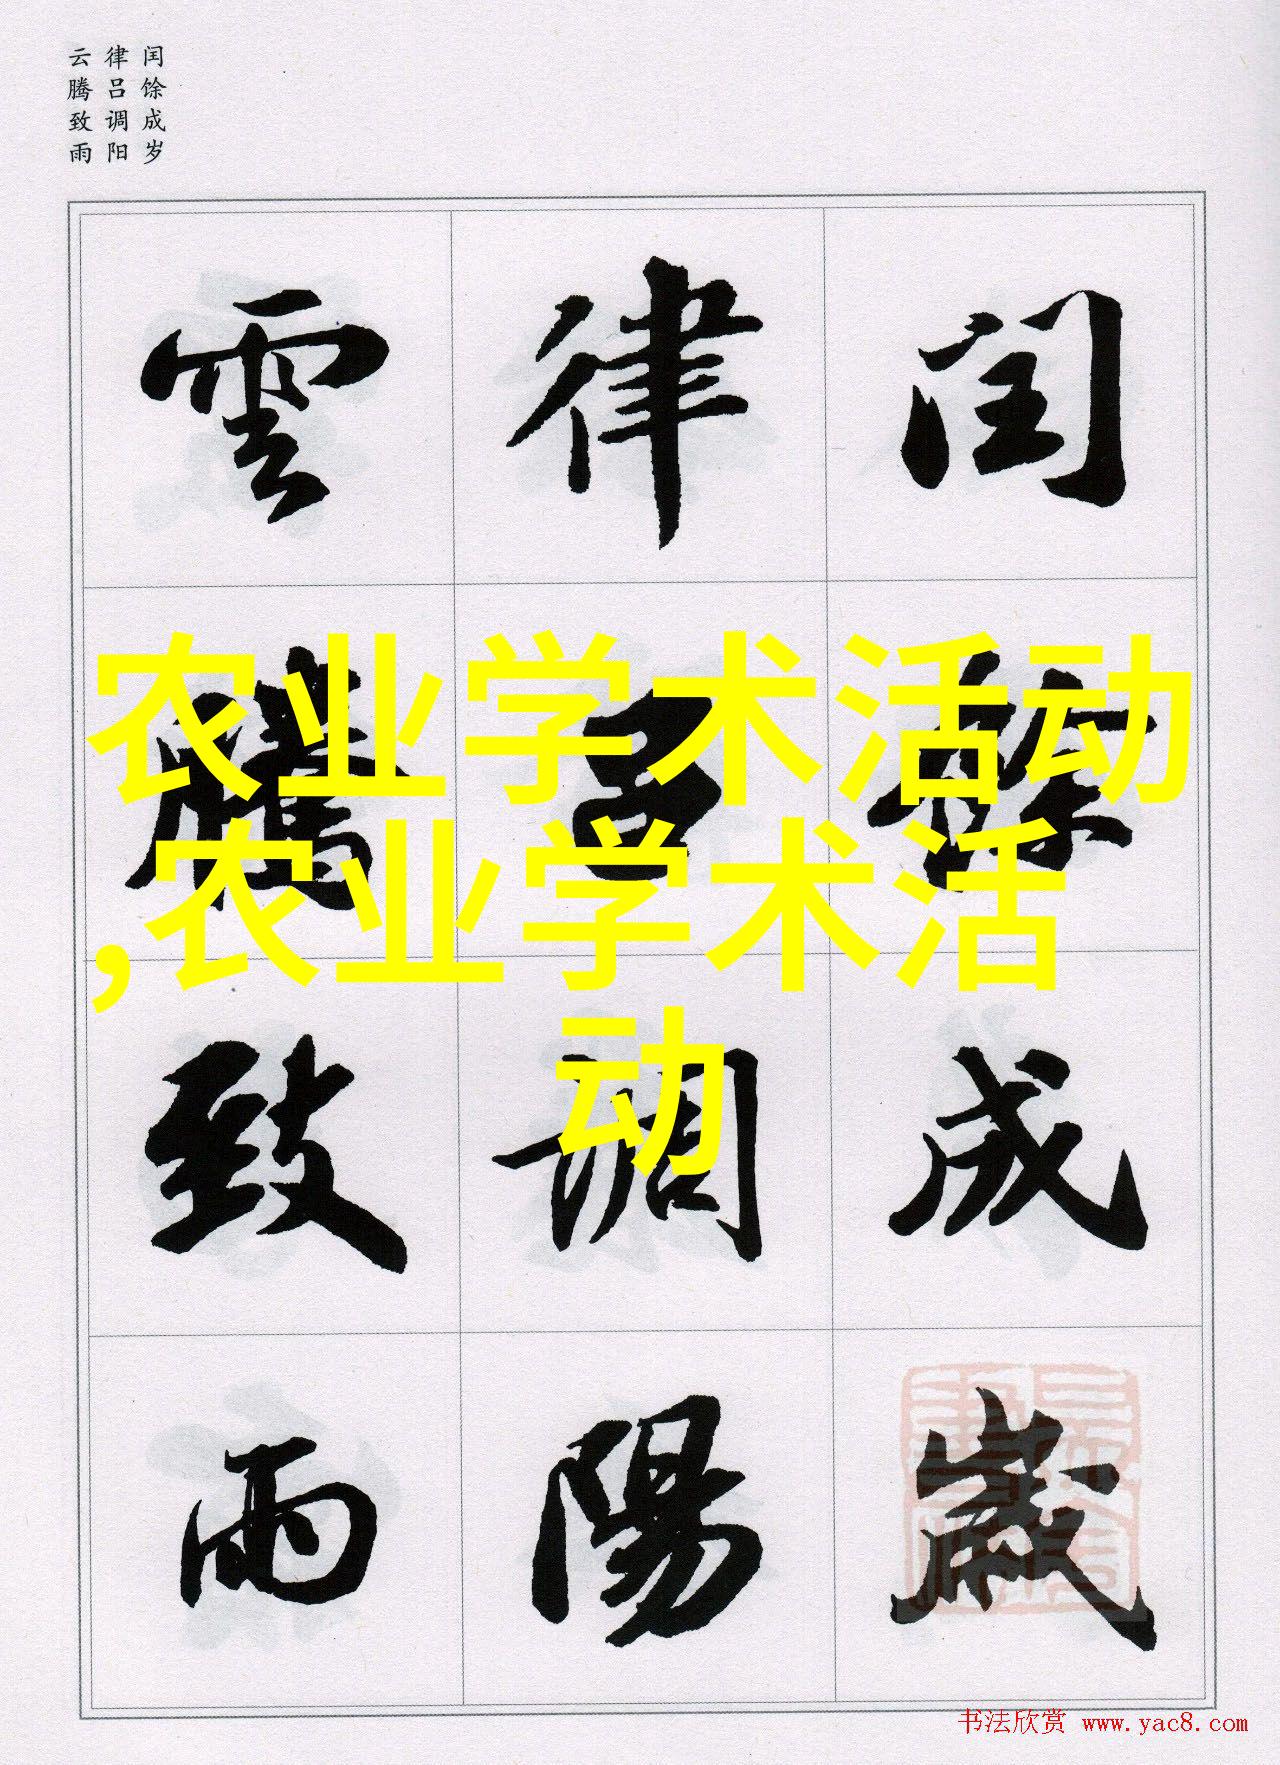 闰馀成岁
律吕调阳
云腾致雨
闰餘成歲
律呂调陽
雲騰致雨
农业学术活动
,农业学术活
动
书法欣赏 www.yac8.com